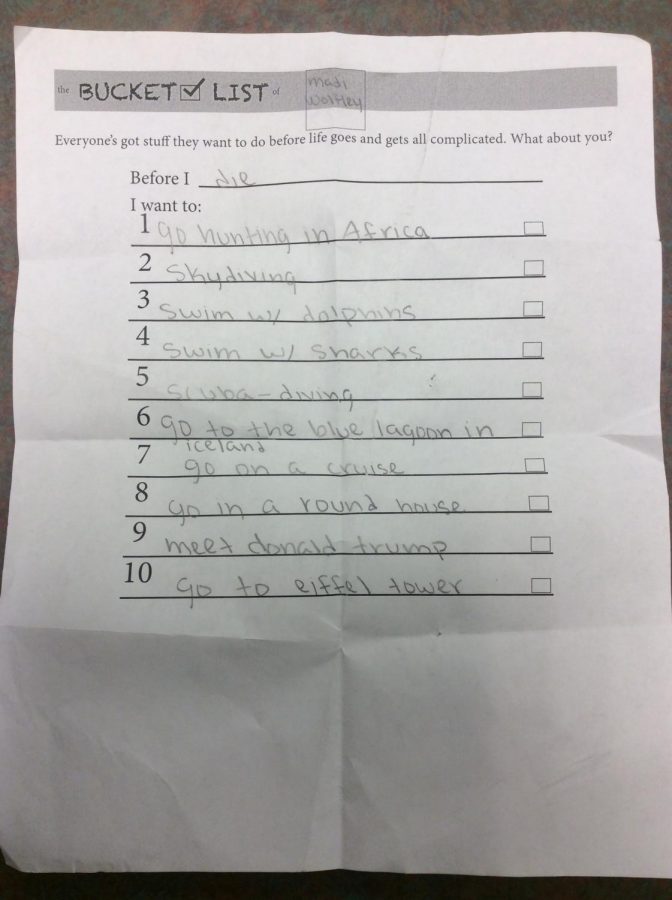 the BUCKET LIST of madi
wortley
Everyone's got stuff they want to do before life goes and gets all complicated. What about you?
Before I die
I want to:
1 go hunting in Africa
2 Skydiving
3 swim w/ dolphins
4 swim w/ sharks
5 scuba-diving
6 go to the blue lagoon in
iceland
7 go on a cruise
8 go in a round house
9 meet donald trump
10 go to eiffel tower